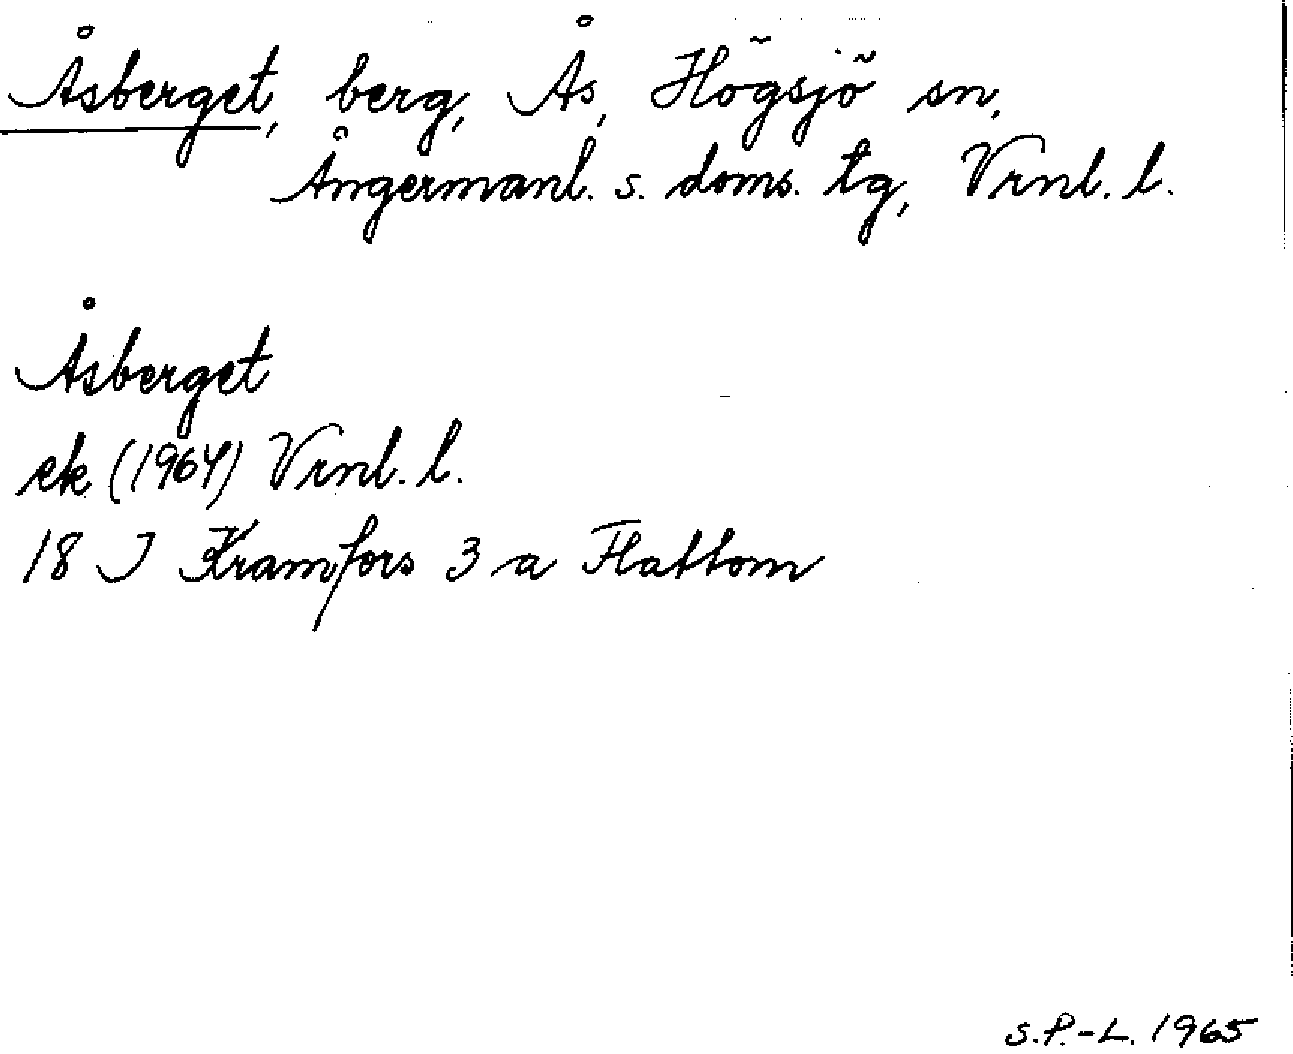 Åsberget, berg, Ås, Högsjö sn,
Ångermanl. s. doms. tg, Vrnl. l.
Åsberget
ek (1964) Vrnl. l.
18 J Kramfors 3 a Flattom
S.P.-L. 1965